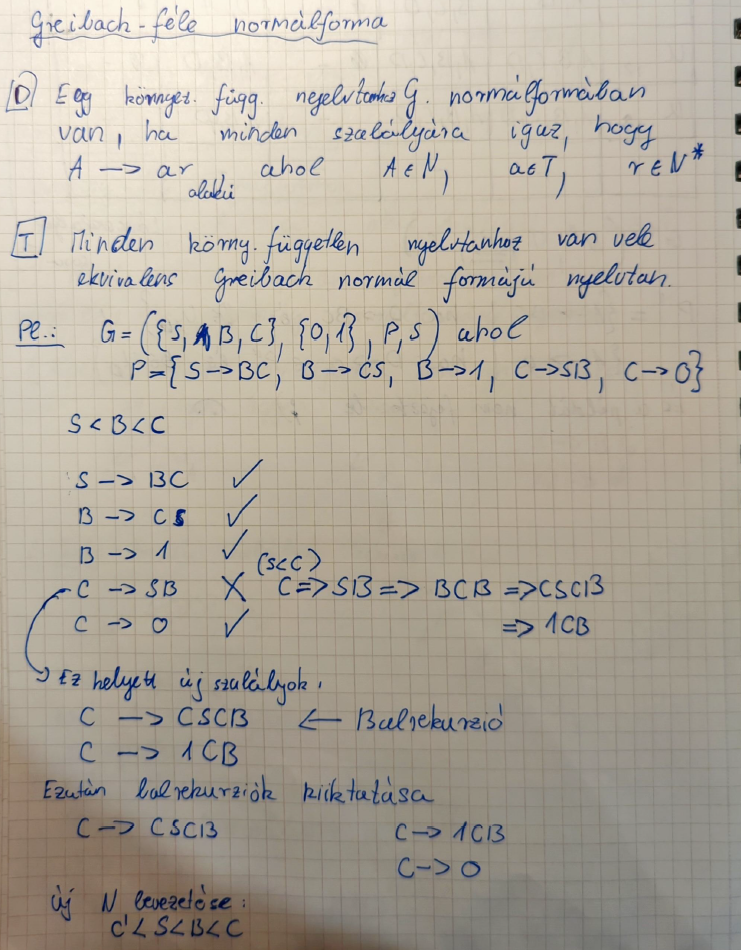 Greibach-féle normálforma
D Egy környez. függ. nyelvtanhoz G. normálformában
van, ha minden szabályára igaz, hogy
A -> ar, ahol A ∈ N, a ∈ T, r ∈ N*
alakú
T Minden körny. független nyelvtanhoz van vele
ekvivalens Greibach normál formájú nyelvtan.
Pl.: G = ({S, B, C}, {0,1}, P, S) ahol
P = {S -> BC, B -> CS, B -> 1, C -> SB, C -> 0}
S < B < C
S -> BC ✓
B -> CS ✓
B -> 1 ✓
(S<C)
C -> SB X C => SB => BCB => CSCB
C -> 0 ✓ => 1CB
Ez helyett új szabályok.
C -> CSCB <- Balrekurzió
C -> 1CB
Ezután balrekurziók kiiktatása
C -> CSCB C -> 1CB
C -> 0
új N bevezetése:
C' < S < B < C